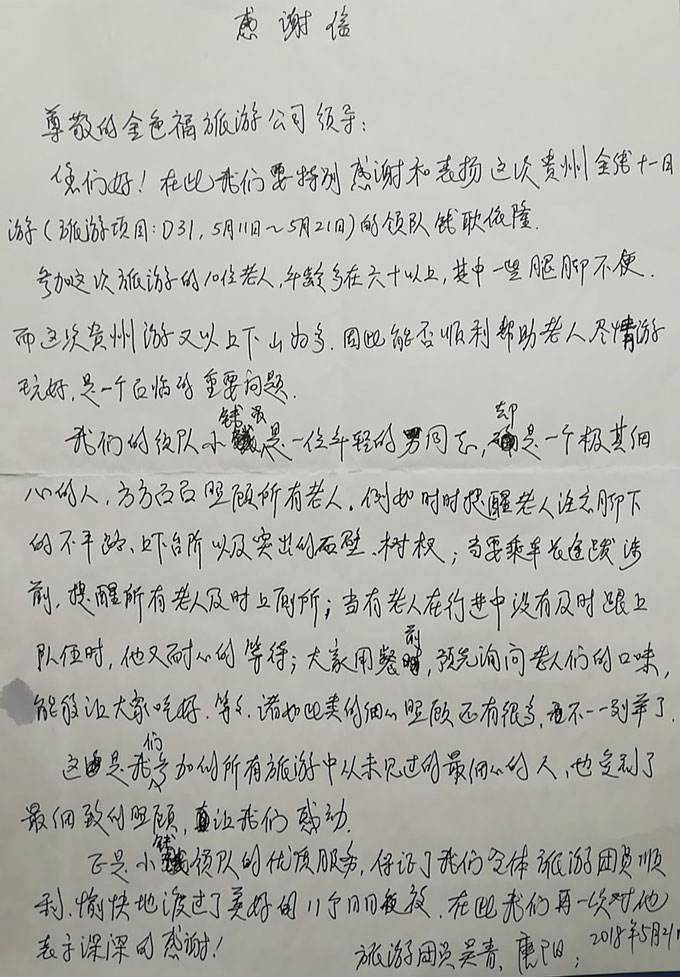 感谢信
尊敬的金色福旅游公司领导:
您们好！在此我们要特别感谢和表扬这次贵州全线十一日
游(旅游项目:D31,5月11日~5月21日)的领队钱耿依隆.
参加这次旅游的10位老人,年龄多在六十以上,其中一些腿脚不便.
而这次贵州游又以上下山为多.因此能否顺利帮助老人尽情游
玩好,是一个面临的重要问题.
我们的领队小钱是一位年轻的男同志,却是一个极其细
心的人,方方面面照顾所有老人.例如时时提醒老人注意脚下
的不平路、上下台阶以及突出的石壁、树杈;当要乘车长途跋涉
前,提醒所有老人及时上厕所;当有老人在行进中没有及时跟上
队伍时,他又耐心的等待;大家用餐前,预先询问老人们的口味,
能够让大家吃好.等等.诸如此类的细心照顾还有很多,不一一列举了.
这是我们参加的所有旅游中从未见过的最细心的人,也受到了
最细致的照顾,真让我们感动.
正是小钱领队的优质服务,保证了我们全体旅游团员顺
利.愉快地渡过了美好的11个日日夜夜.在此我们再一次对他
表示深深的感谢!
旅游团员吴青、唐阳;2018年5月21日